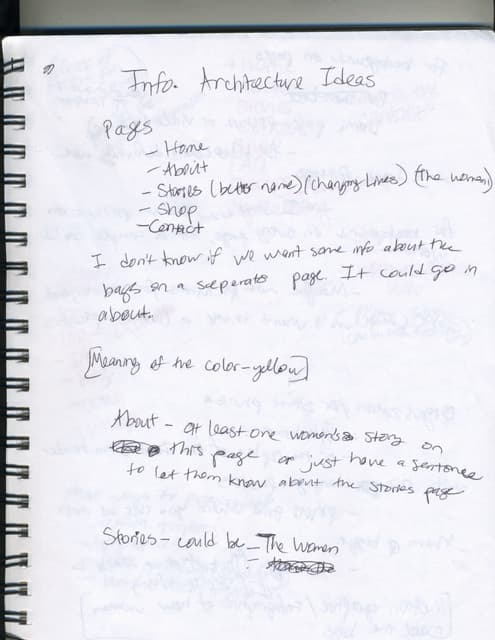 Info. Architecture Ideas
Pages
- Home
- About
- Stories (better name) (changing lives) (the women)
- Shop
- Contact
I don't know if we want some info about the
bags on a seperate page. It could go in
about.
[Meaning of the color-yellow]
About - at least one women's story on
this page or just have a sentence
to let them know about the stories page
Stories - could be - The Women
-